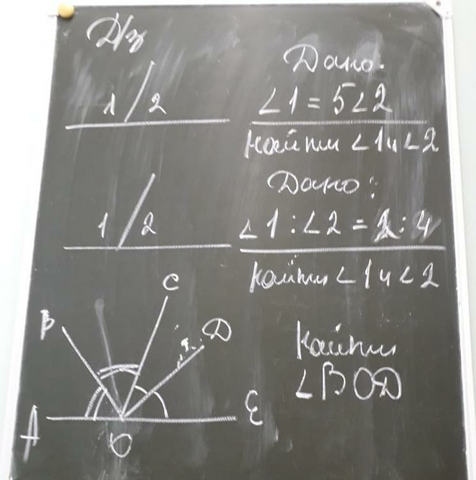 Д/з
Дано:
1 / 2
∠1 = 5∠2
Найти ∠1 и ∠2
Дано:
1 / 2
∠1 : ∠2 = : 4
Найти ∠1 и ∠2
C
B
D
A
O
E
Найти
∠BOD